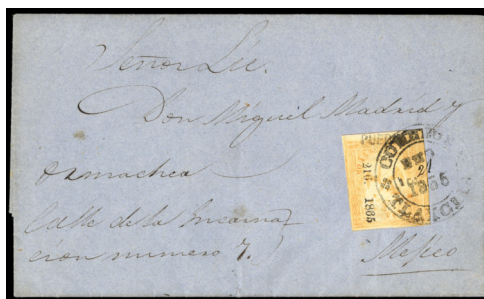 Señor Lic.
Don Miguel Madrid y
Ormachea
Calle de la Encarna
cion numero 7.
Mejico
PUE
216. 1865
CORREOS
1865